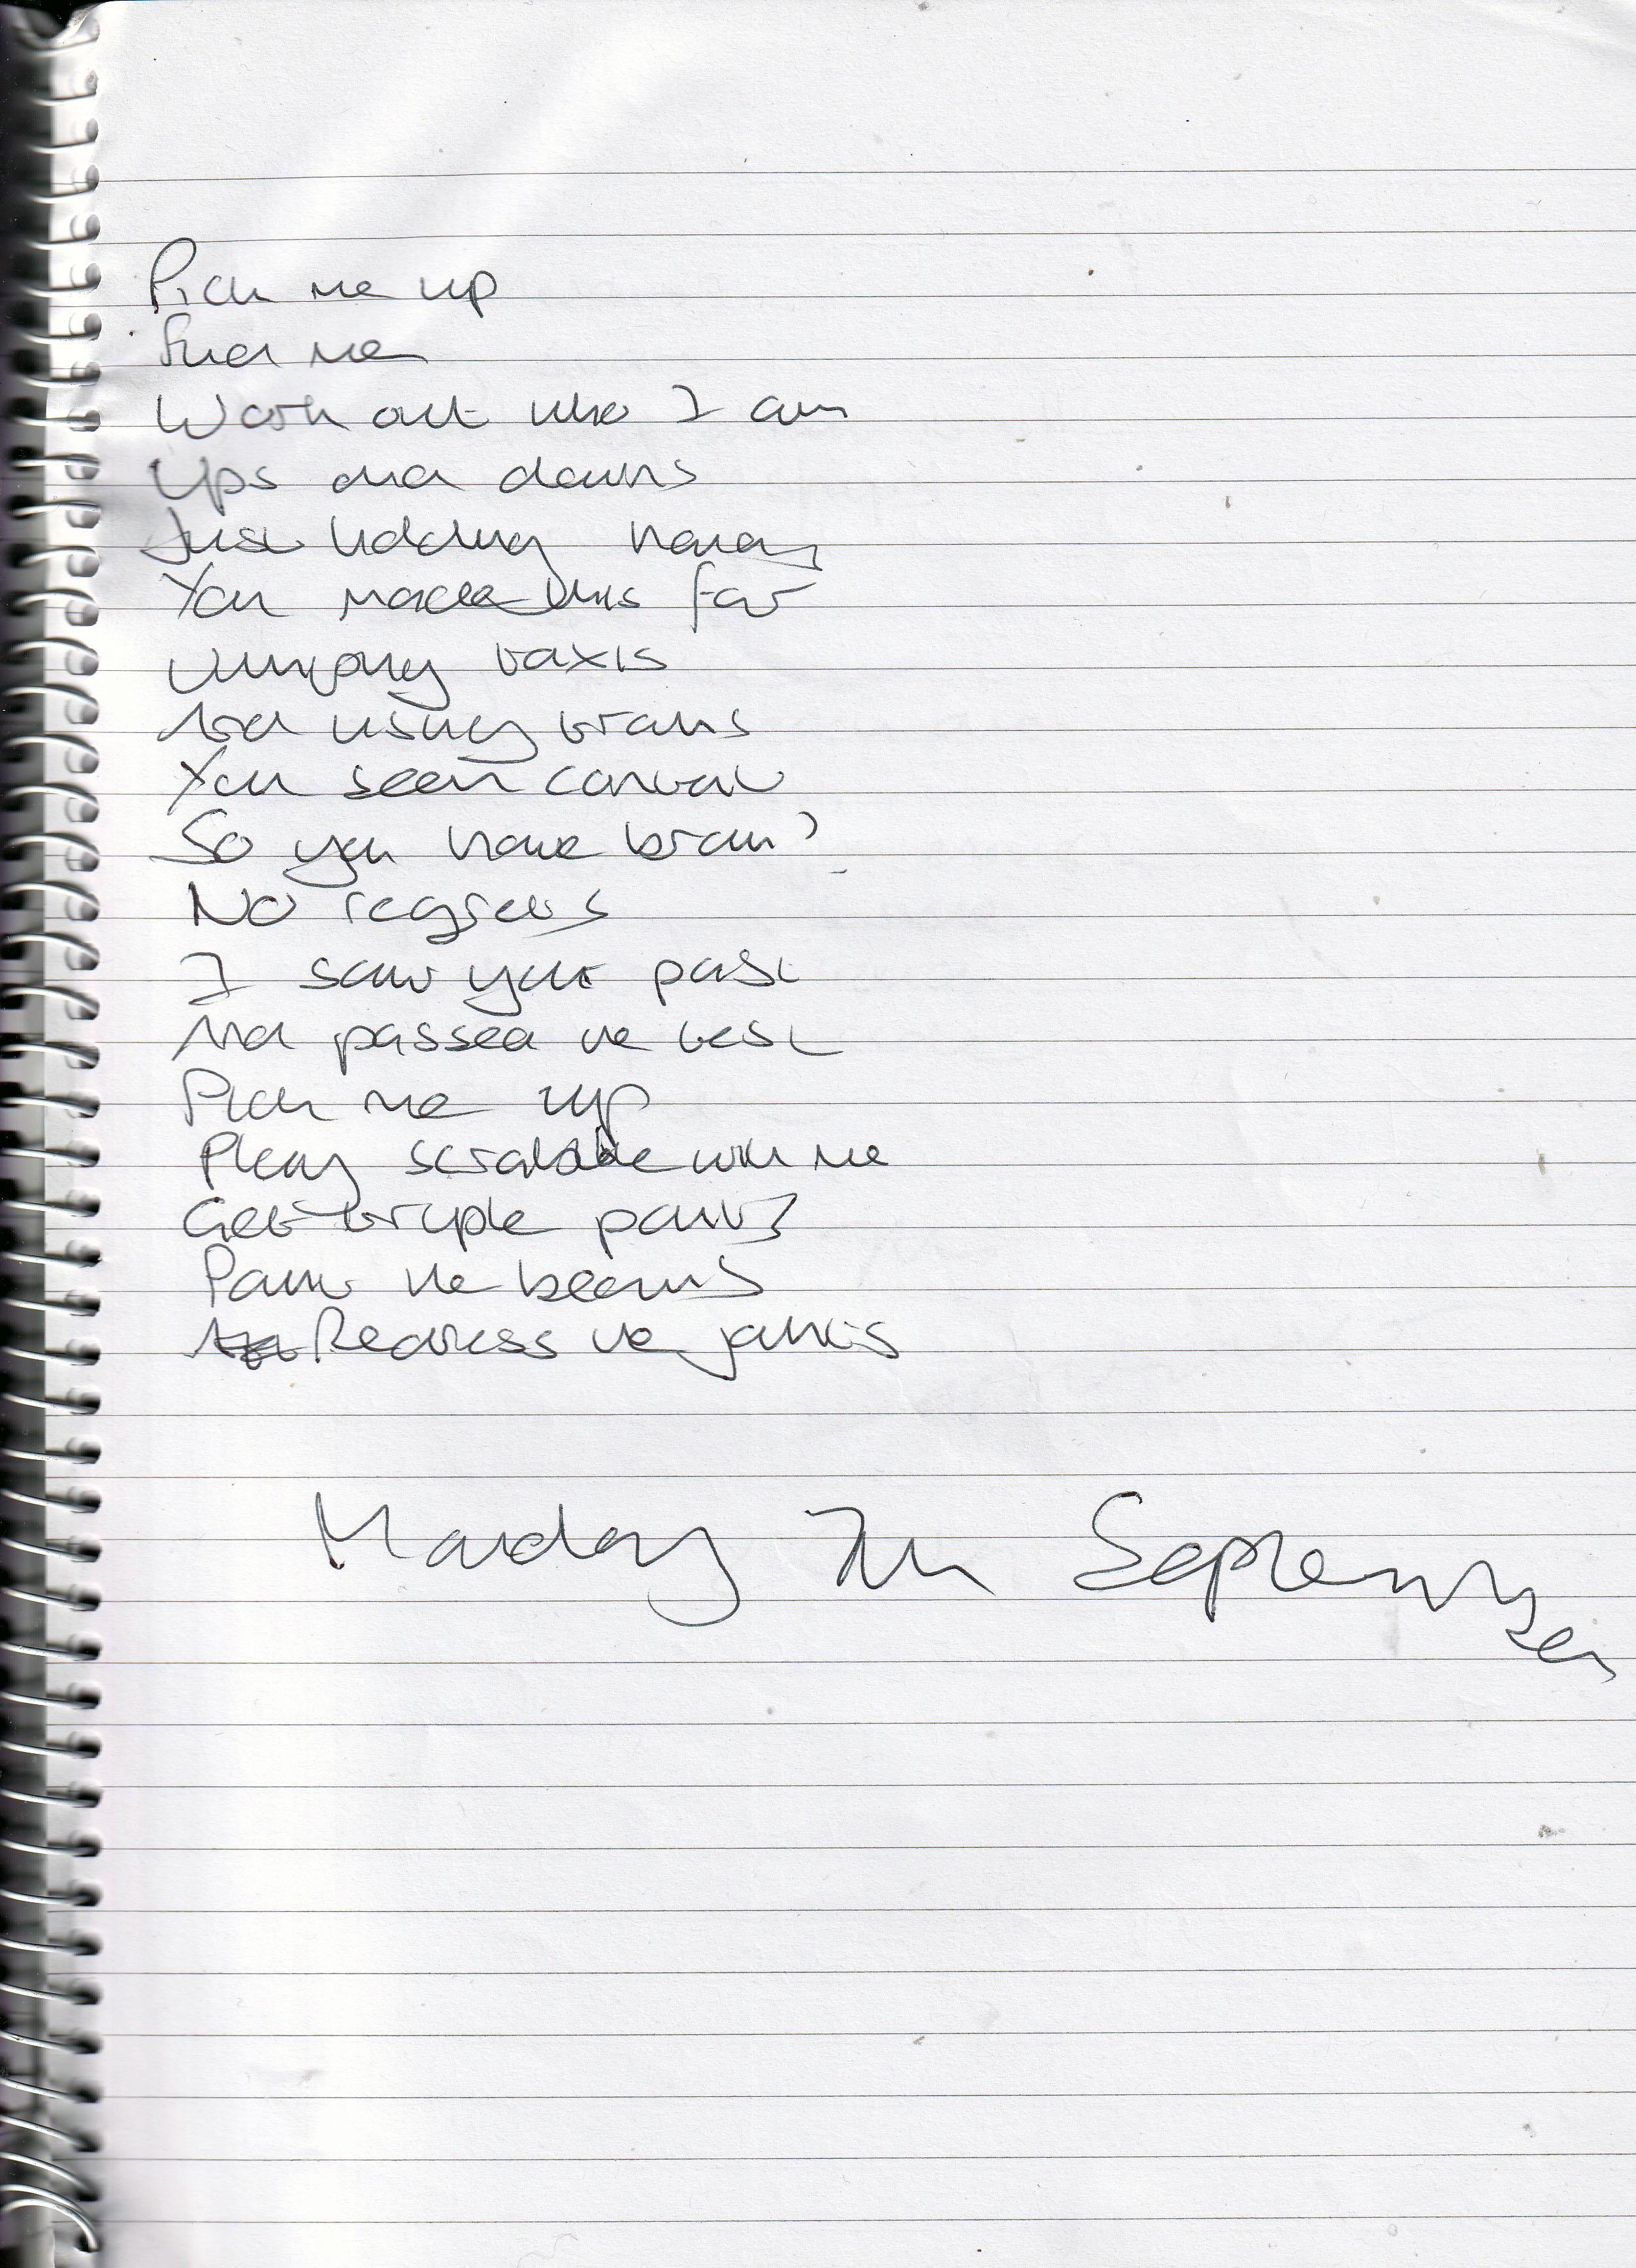 Pick me up
Find me
Work out who I am
Ups and downs
Just holding
You made this far
Jumping taxis
And using trains
You seen
So you have brain?
No regrets
I saw your past
And passed the test
Pick me up
Play scrabble with me
Get triple points
Paint the
Redress the
Monday 7th September